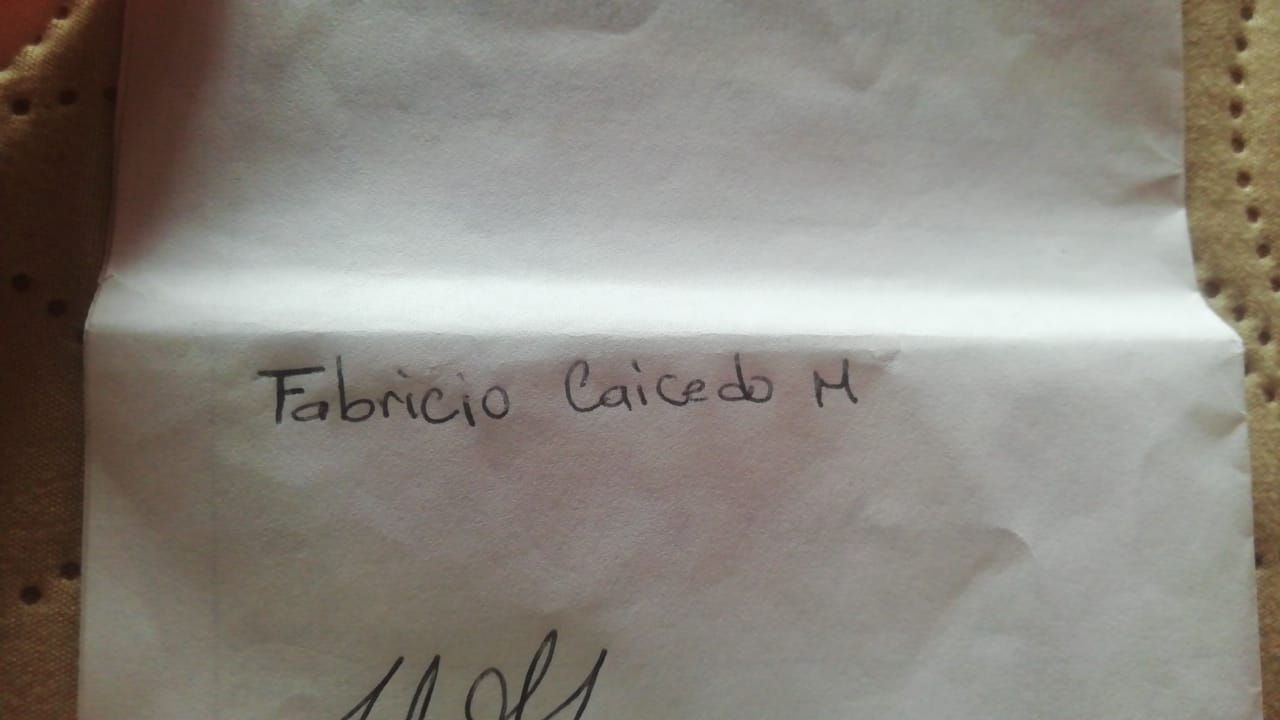 Fabricio Caicedo M